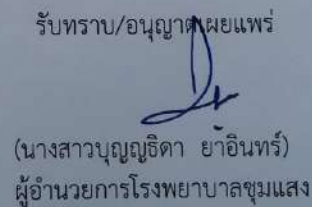 รับทราบ/อนุญาตเผยแพร่
(นางสาวบุญญธิดา ยาอินทร์)
ผู้อำนวยการโรงพยาบาลชุมแสง